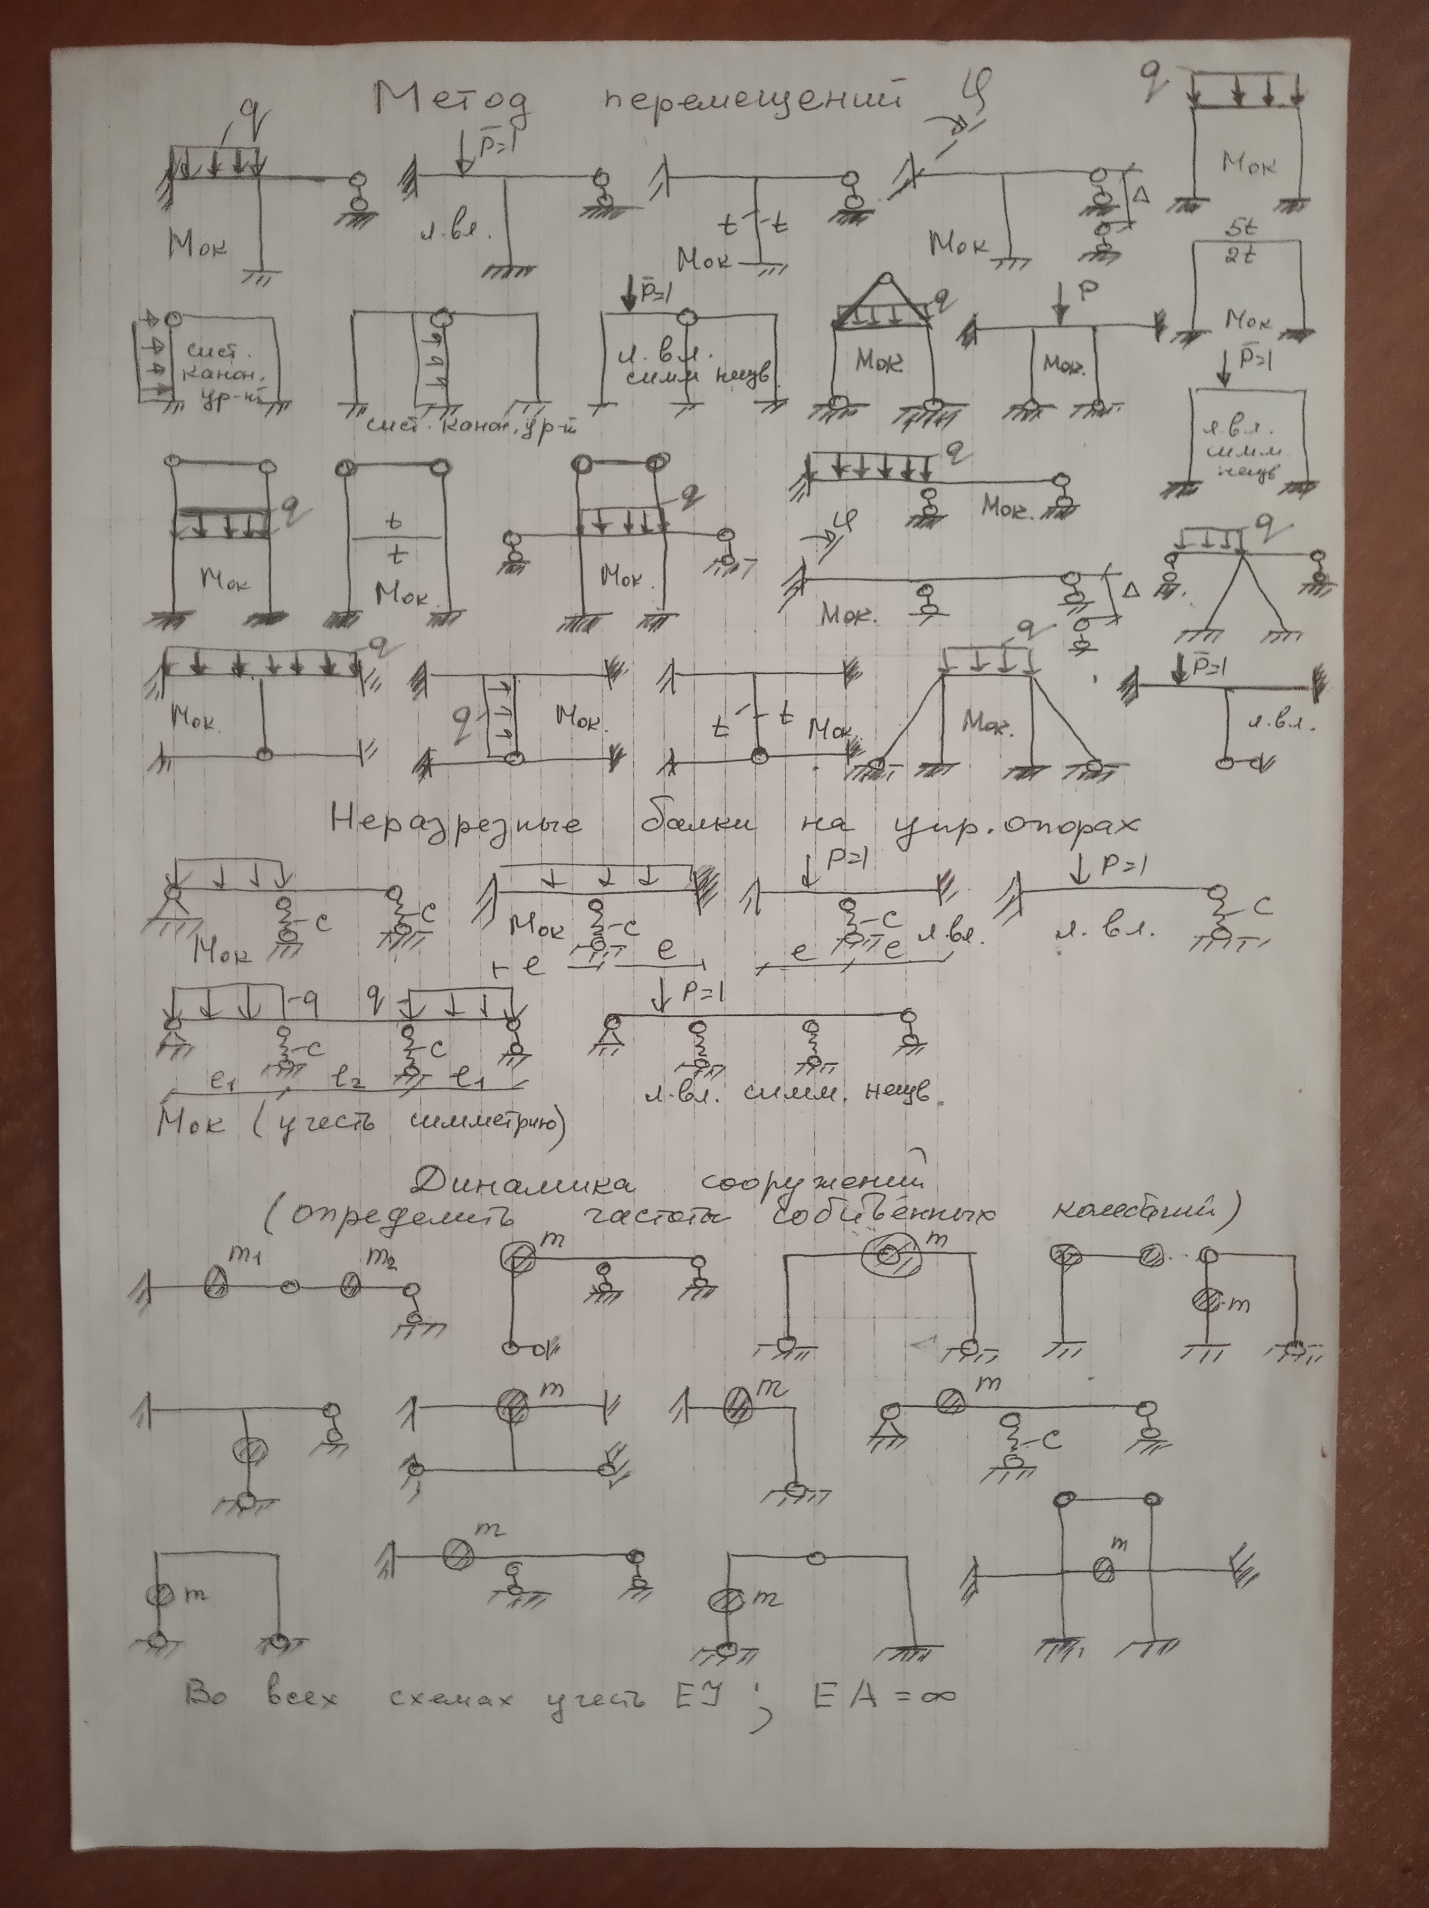 Метод перемещений
q P̅=1 φ q
Δ
Мок л.вл. t t Мок Мок Мок
5t
2t
Мок
P̅=1 q P
сист. канон. ур-й
сист. канон. ур-й
л.вл. симм нешв
Мок Мок.
P̅=1
л.вл. симм нешв
q Мок
t
t
Мок.
q Мок.
q Мок.
φ Мок. Δ
q
q Мок.
q Мок.
t t Мок.
q Мок.
P̅=1 л.вл.
Неразрезные балки на упр. опорах
Мок c c
Мок c
ℓ ℓ
P=1 c л.вл.
ℓ ℓ
P=1 л.вл. c
q q c c
ℓ1 ℓ2 ℓ1
Мок (учесть симметрию)
P=1
л.вл. симм. нешв.
Динамика сооружений
(определить частоты собственных колебаний)
m1 m2 m m m
m m m c
m m m m
Во всех схемах учесть EJ ; EA = ∞